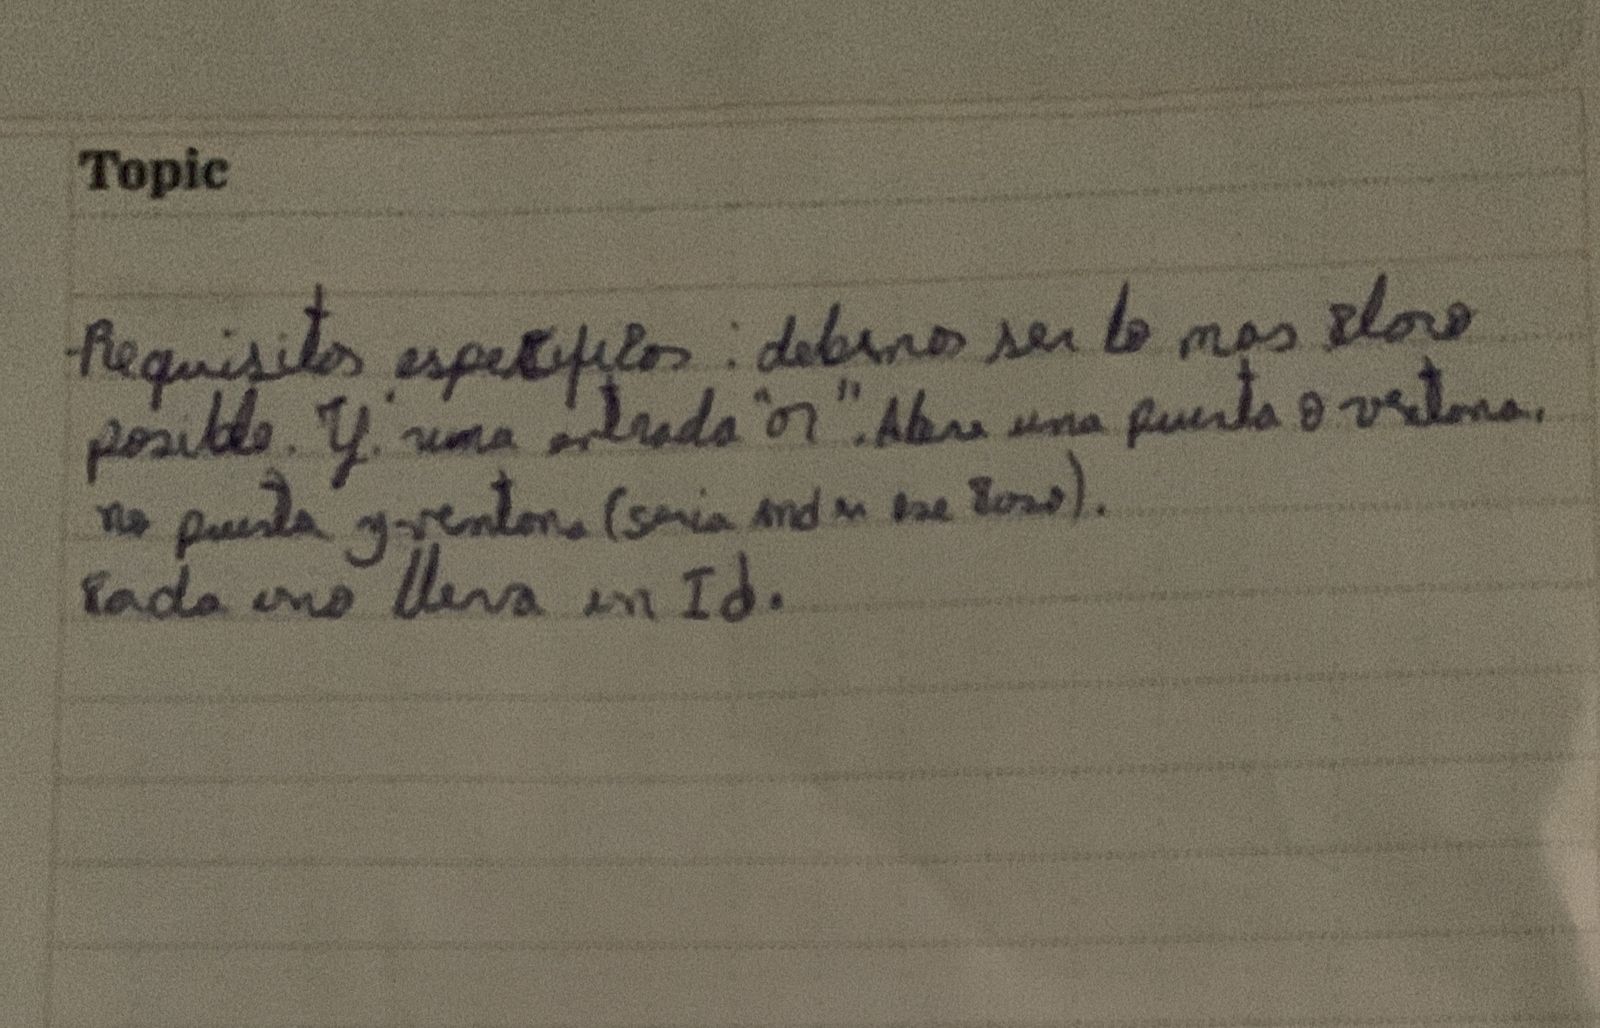 Topic
-Requisitos especificos: debemos ser lo mas claro
posible. Y. una entrada "or". Abre una puerta o ventana.
no puerta y ventana (seria and en ese caso).
Cada uno lleva un Id.